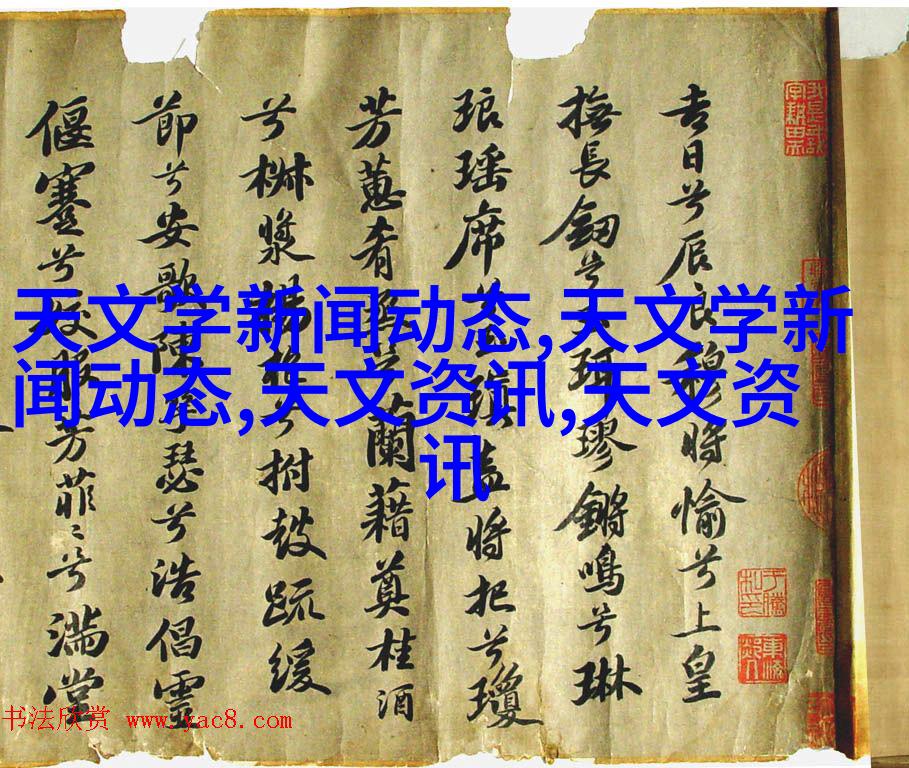 吉日兮辰良穆將愉兮上皇
撫長劒兮玉珥璆鏘鳴兮琳
琅瑤席兮玉瑱盍將把兮瓊
芳蕙肴蒸兮蘭藉奠桂酒
兮椒漿揚枹兮拊鼓疏緩
節兮安歌陳竽瑟兮浩倡靈
偃蹇兮姣服芳菲〻兮滿堂
天文学新闻动态,天文学新
闻动态,天文资讯,天文资
讯
书法欣赏 www.yac8.com